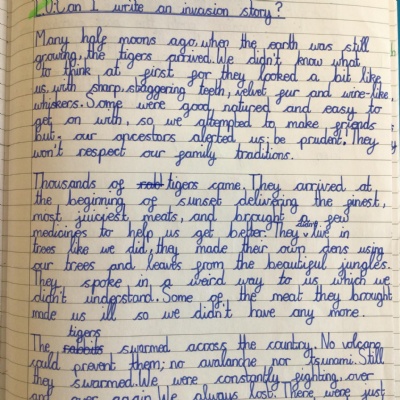 LO: Can I write an invasion story?
Many half moons ago, when the earth was still
growing, the tigers arrived. We didn't know what
to think at first for they looked a bit like
us, with sharp, staggering teeth, velvet fur and wire-like,
whiskers. Some were good natured and easy to
get on with, so we attempted to make friends
but, our ancestors alerted us, be prudent. They
won't respect our family traditions.
Thousands of tigers came. They arrived at
the beginning of sunset delivering the finest,
most juiciest, meats, and brought a few
medicines to help us get better. They live in
trees like we did, they made their own dens using
our trees and leaves from the beautiful jungles.
They spoke in a weird way to us which we
didn't understand. Some of the meat they brought
made us ill so we didn't have any more.
tigers
The rabbits swarmed across the country. No volcano
could prevent them; no avalanche nor tsunami. Still
they swarmed. We were constantly fighting, over
and over again. We always lost. There were just